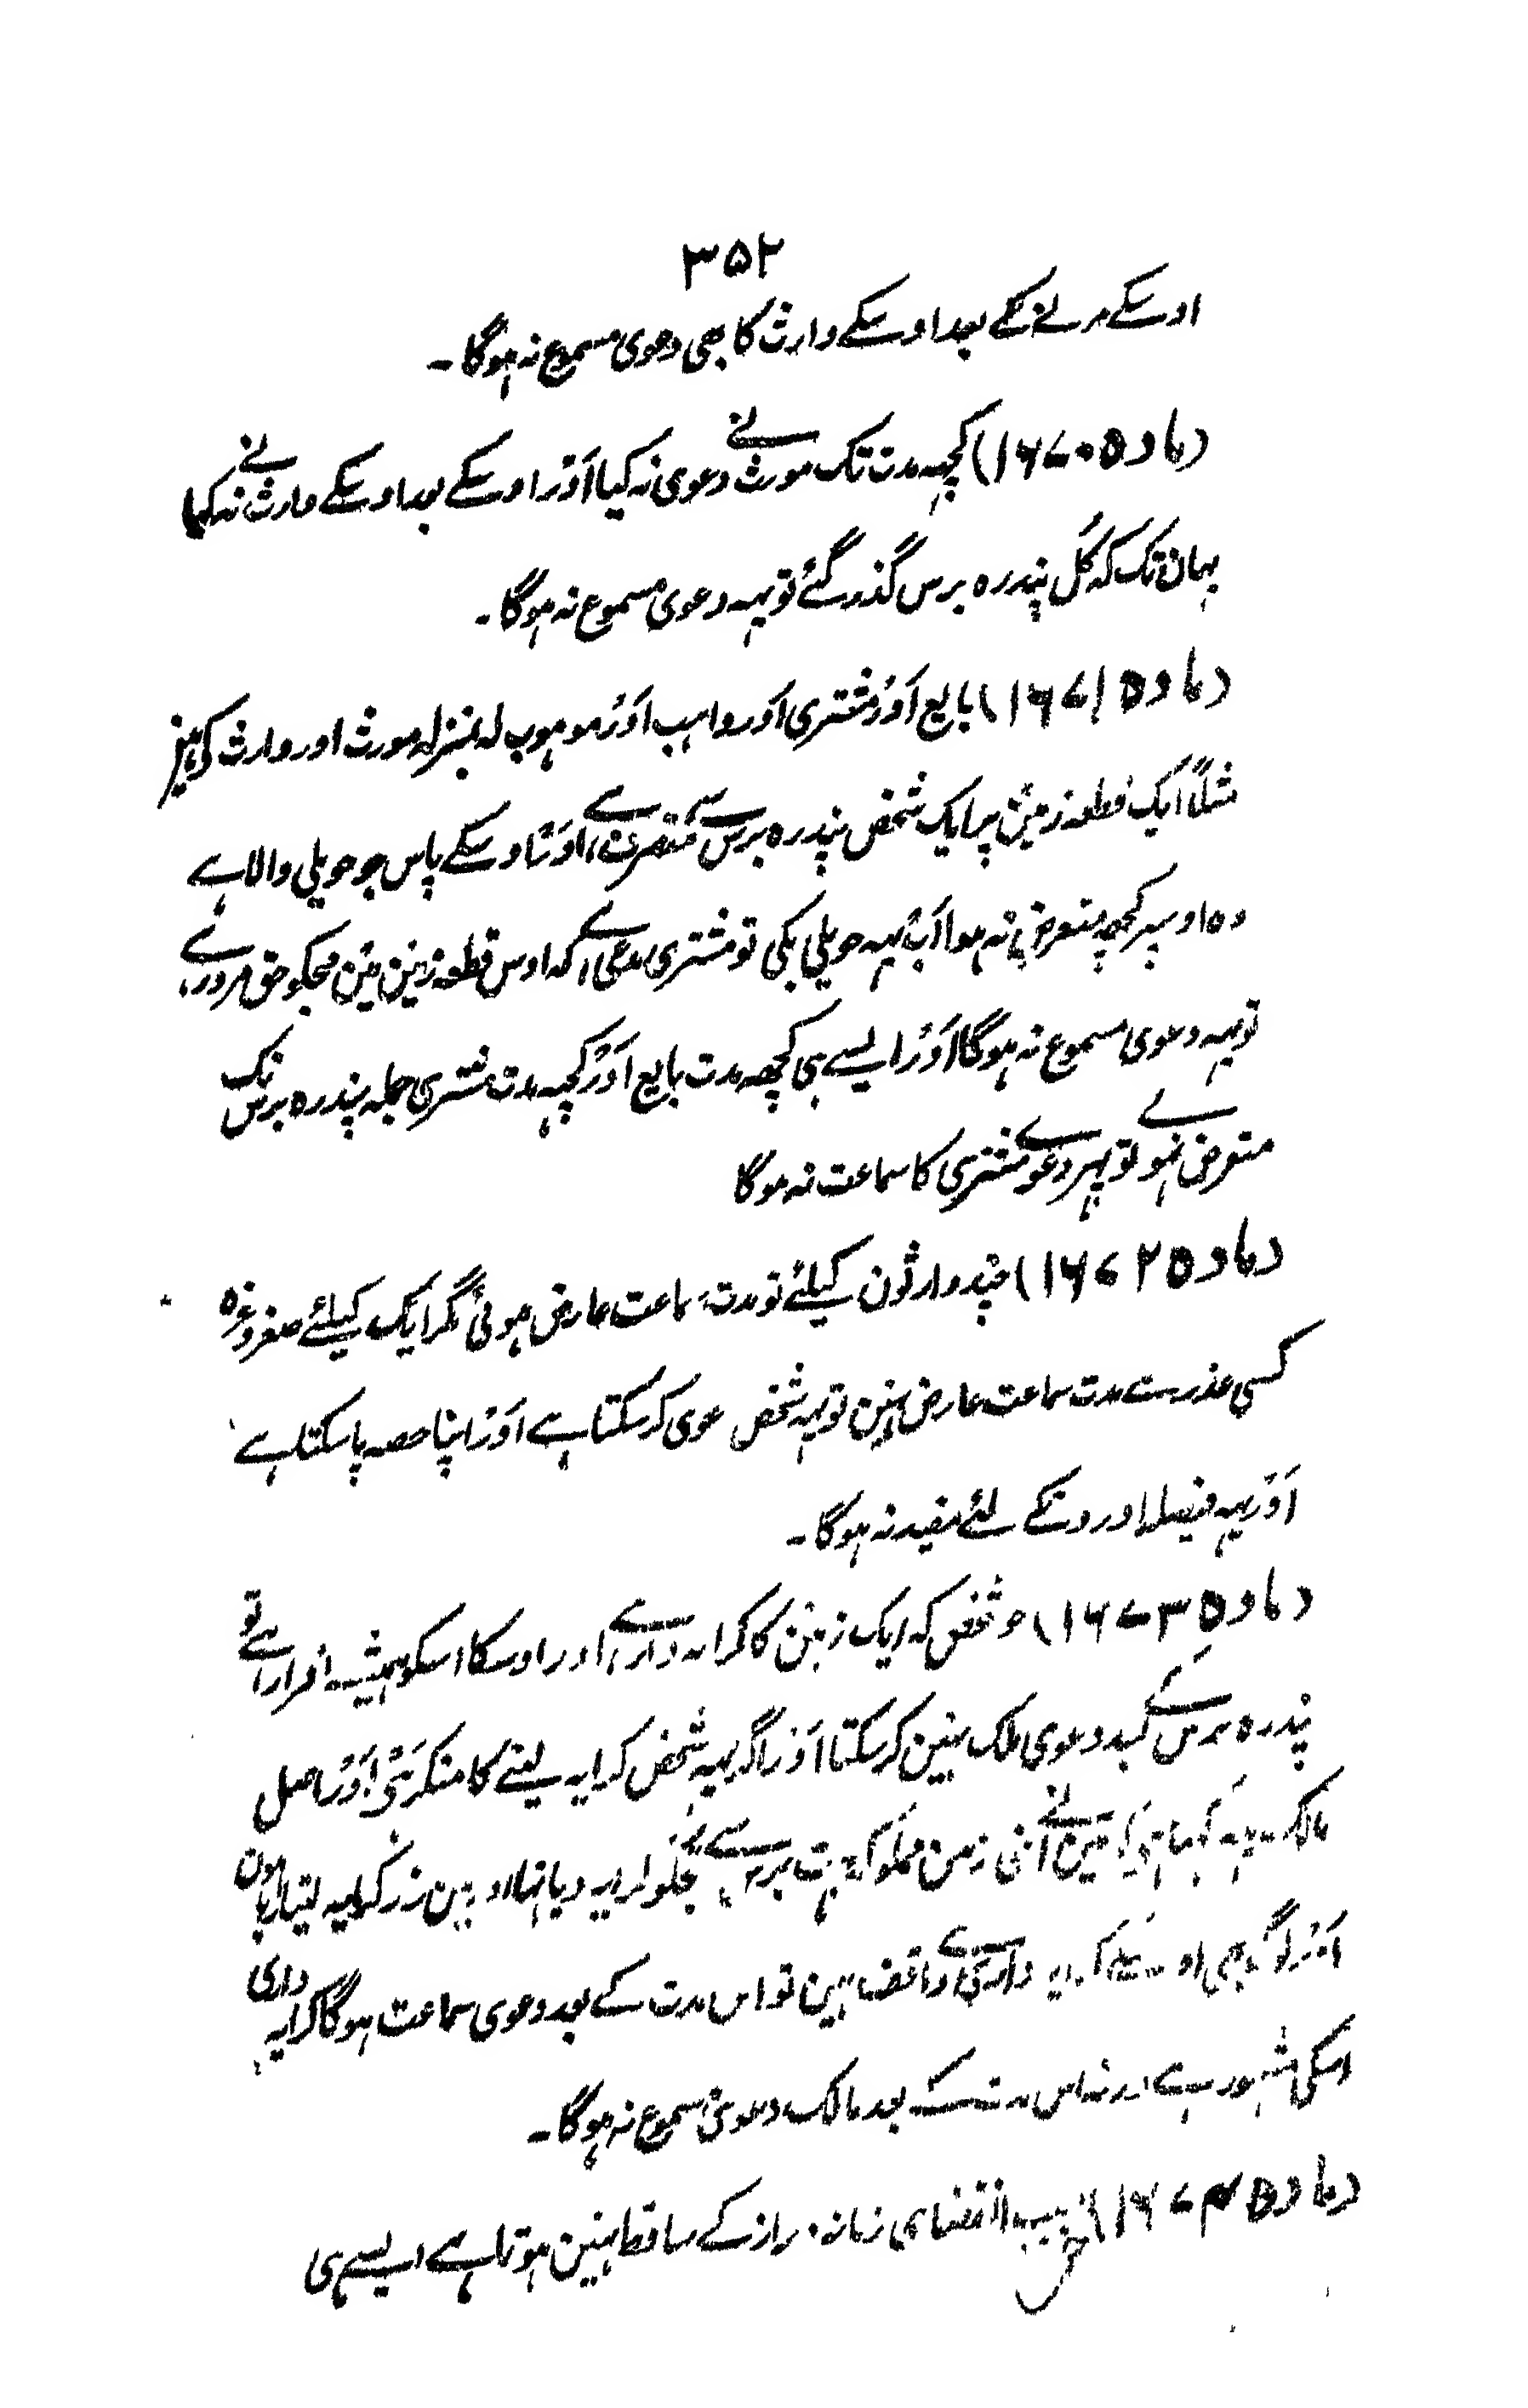 ۳۵۲
اوسکے مرنے کے بعد اوسکے وارث کا بھی دعوی مسموع نہ ہوگا ۔
(مادہ ۱۶۷۰) کچہہ مدت تک مورث نے دعوی نہ کیا اَوْر اوسکے بعد اوسکے وارث نے نہ کیا
یہان تک کہ کُل پندرہ برس گذر گئے تو یہہ دعوی مسموع نہ ہوگا ۔
(مادہ ۱۶۷۱) بایع اَوْر مشتری اَوْر واہب اَوْر موہوب لہ بمنزلہ مورث اور وارث کی ہین
مثلاً ایک قطعہ زمین پر ایک شخص پندرہ برس سے متصرف ہے اَوْر اوسکے پاس جو حویلی والا ہے
وہ اوسپر کچھ متعرض نہ ہوا اَبْ یہہ حویلی بکی تو مشتری مدعی ہے کہ اوس قطعہ زمین میْن مجکو حق مرور ہے
تو یہہ دعوی مسموع نہ ہوگا اَوْر ایسے ہی کچھہ مدت بایع اَوْر کچہہ مدت مشتری جملہ پندرہ برس تک
متعرض نہو تو پہر دعوے مشتری کا سماعت نہ ہوگا
(مادہ ۱۶۷۲) چند وارثون کیلئے تو مدت سماعت عارض ہوئی مگر ایک کیلئے صغر وغیرہ
کسی عذر سے مدت سماعت عارض نہین تو یہہ شخص دعوی کر سکتا ہے اَوْر اپنا حصہ پا سکتا ہے
اَوْر یہہ فیصلہ اورونکے لئے مفید نہ ہوگا ۔
(مادہ ۱۶۷۳) جو شخص کہ ایک زمین کا کرایہ دار ہے اور اوسکا اسکو ہمیشہ اقرار ہے تو
پندرہ برس کے بعد دعوی ملک نہین کر سکتا اَوْر اگر یہہ شخص کرایہ لینے کا منکر ہَیْ اَوْر اصل
مالک یہہ کہتا ہَیْ کہ میْن نے اپنی زمین مملوکہ بہت برس سے تجکو کرایہ دیا تہا اور مین زر کرایہ لیتا رہا ہون
اَوْر لوگ بھی اوسکے کرایہ داری سے واقف ہین تو اس مدت کے بعد دعوی سماعت ہوگا کرایہ داری
اسکی مشہور ہے ورنہ اس مدت کے بعد مالک دعوی مسموع نہ ہوگا ۔
(مادہ ۱۶۷۴) حق بسبب انقضای زمانہ دراز کے ساقط نہین ہوتا ہے ایسے ہی